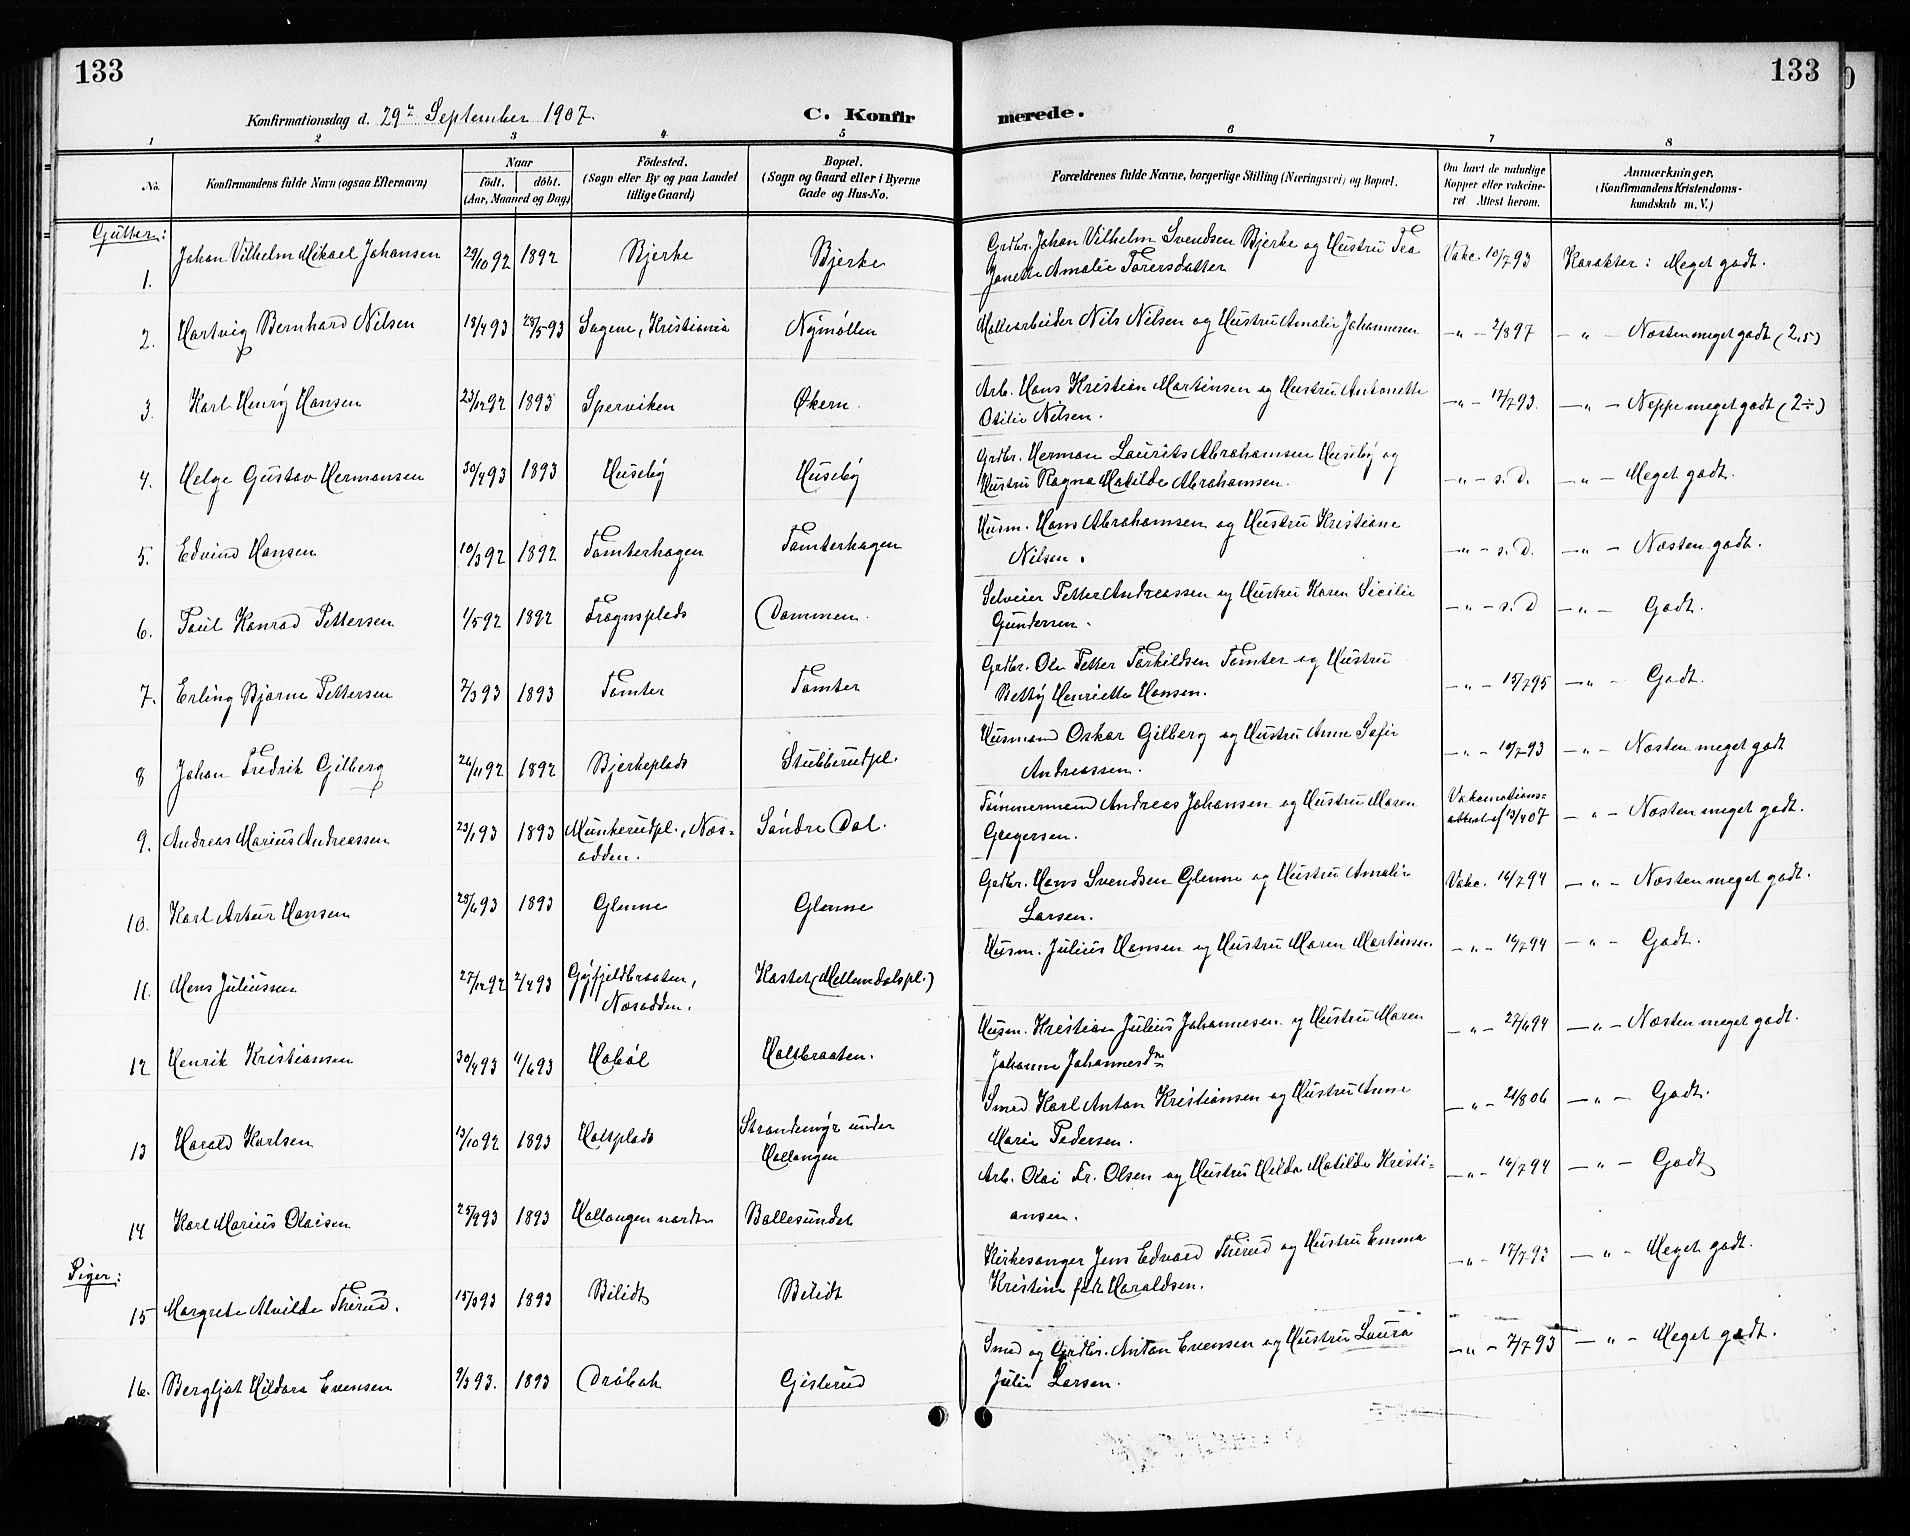 133
133
Konfirmationsdag d. 29de September 1907.
C. Konfir
merede.
1 2 3 4 5 6 7 8
No.
Konfirmandens fulde Navn (ogsaa Efternavn)
Naar
födt. döbt.
(Aar, Maaned og Dag)
Födested.
(Sogn eller By og paa Landet
tillige Gaard)
Bopæl.
(Sogn og Gaard eller i Byerne
Gade og Hus-No.
Forældrenes fulde Navne, borgerlige Stilling (Næringsvei) og Bopæl.
Om havt de naturlige
Kopper eller vakcine-
ret. Attest herom.
Anmærkninger,
(Konfirmandens Kristendoms-
kundskab m. V.)
Gutter:
1. Johan Vilhelm Mikael Johansen 29/10 92 1892 Bjerke Bjerke Grdbr. Johan Vilhelm Svendsen Bjerke og Hustru Tea Vakc. 10/7 93 Karakter: Meget godt.
Janette Amalie Torersdatter
2. Hartvig Bernhard Nilsen 18/4 93 28/5 93 Sagene, Kristiania Nymøllen Møllearbeider Nils Nilsen og Hustru Amalie Johannesen —"— 2/8 97 —"— Næsten meget godt (2,5)
3. Karl Henry Hansen 23/12 92 1893 Sperviken Økern. Arb. Hans Kristian Martinsen og Hustru Antonette —"— 17/7 93. —"— Neppe meget godt (2÷)
Otilie Nilsen.
4. Helge Gustav Hermansen 30/4 93 1893 Huseby Huseby Grdbr. Herman Laurits Abrahamsen Huseby og —"— s. d. —"— Meget godt.
Hustru Ragna Matilde Abrahamsen.
5. Edvind Hansen 10/3 92 1892 Tomterhagen Tomterhagen Husm. Hans Abrahamsen og Hustru Kristiane —"— s. d. —"— Næsten godt.
Nilsen.
6. Paul Konrad Pettersen 1/5 92 1892 Trognsplads Dammen. Selveier Petter Andreassen og Hustru Karen Sicilie —"— s. d —"— Godt.
Gundersen.
7. Erling Bjarne Pettersen 7/3 93 1893 Tomter Tomter Grdbr. Ole Petter Torkildsen Tomter og Hustru —"— 15/7 95 —"— Godt.
Betty Henriette Hansen.
8 Johan Fredrik Gilberg 26/11 92 1892 Bjerkeplads Stubberudpl. Husmand Oskar Gilberg og Hustru Anne Sofie —"— 10/7 93 —"— Næsten meget godt
Andreassen.
9. Andreas Marius Andreassen 23/1 93 1893 Munkerudpl., Næs- Søndre Dal. Tømmermand Andreas Johansen og Hustru Maren Vakcinations- —"— Næsten meget godt.
odden. Gregersen. attest af 13/4 07
10. Karl Artur Hansen 28/6 93 1893 Glenne Glenne Grdbr. Hans Svendsen Glenne og Hustru Amalie Vakc. 16/7 94 —"— Næsten meget godt.
Larsen.
11. Mens Juliussen 27/12 92 2/4 93 Gyfjeldbraaten, Kastet (Mellemdalspl.) Husm. Julius Hansen og Hustru Maren Martinsen. —"— 16/7 94 —"— Godt.
Næsodden.
12 Henrik Kristiansen 30/4 93 11/6 93 Hobøl Holtbraaten. Husm. Kristian Julius Johannesen og Hustru Maren —"— 27/6 94 —"— Næsten meget godt.
Johanne Johannesdtr
13 Harald Karlsen 13/10 92 1893 Holtsplads Strandemyr under Smed Karl Anton Kristiansen og Hustru Anne —"— 21/8 06 —"— Godt.
Hallangen Marie Pedersen.
14 Karl Marius Olaisen 25/2 93 1893 Hallangen nordre Ballesundet Arb. Olai Fr. Olsen og Hustru Hilda Matilde Kristi- —"— 16/7 94 —"— Godt
ansen.
Piger:
15 Margrete Alvilde Thirud. 15/3 93 1893 Bilidt Bilidt Kirkesanger Jens Edvard Thirud og Hustru Emma —"— 17/7 93 —"— Meget godt.
Kristine født Haraldsen.
16. Bergljot Hildora Evensen 9/3 93. 1893 Drøbak Gislerud Smed og Grdbr. Anton Evensen og Hustru Laura —"— 7/7 93 —"— Meget godt.
Julie Larsen.